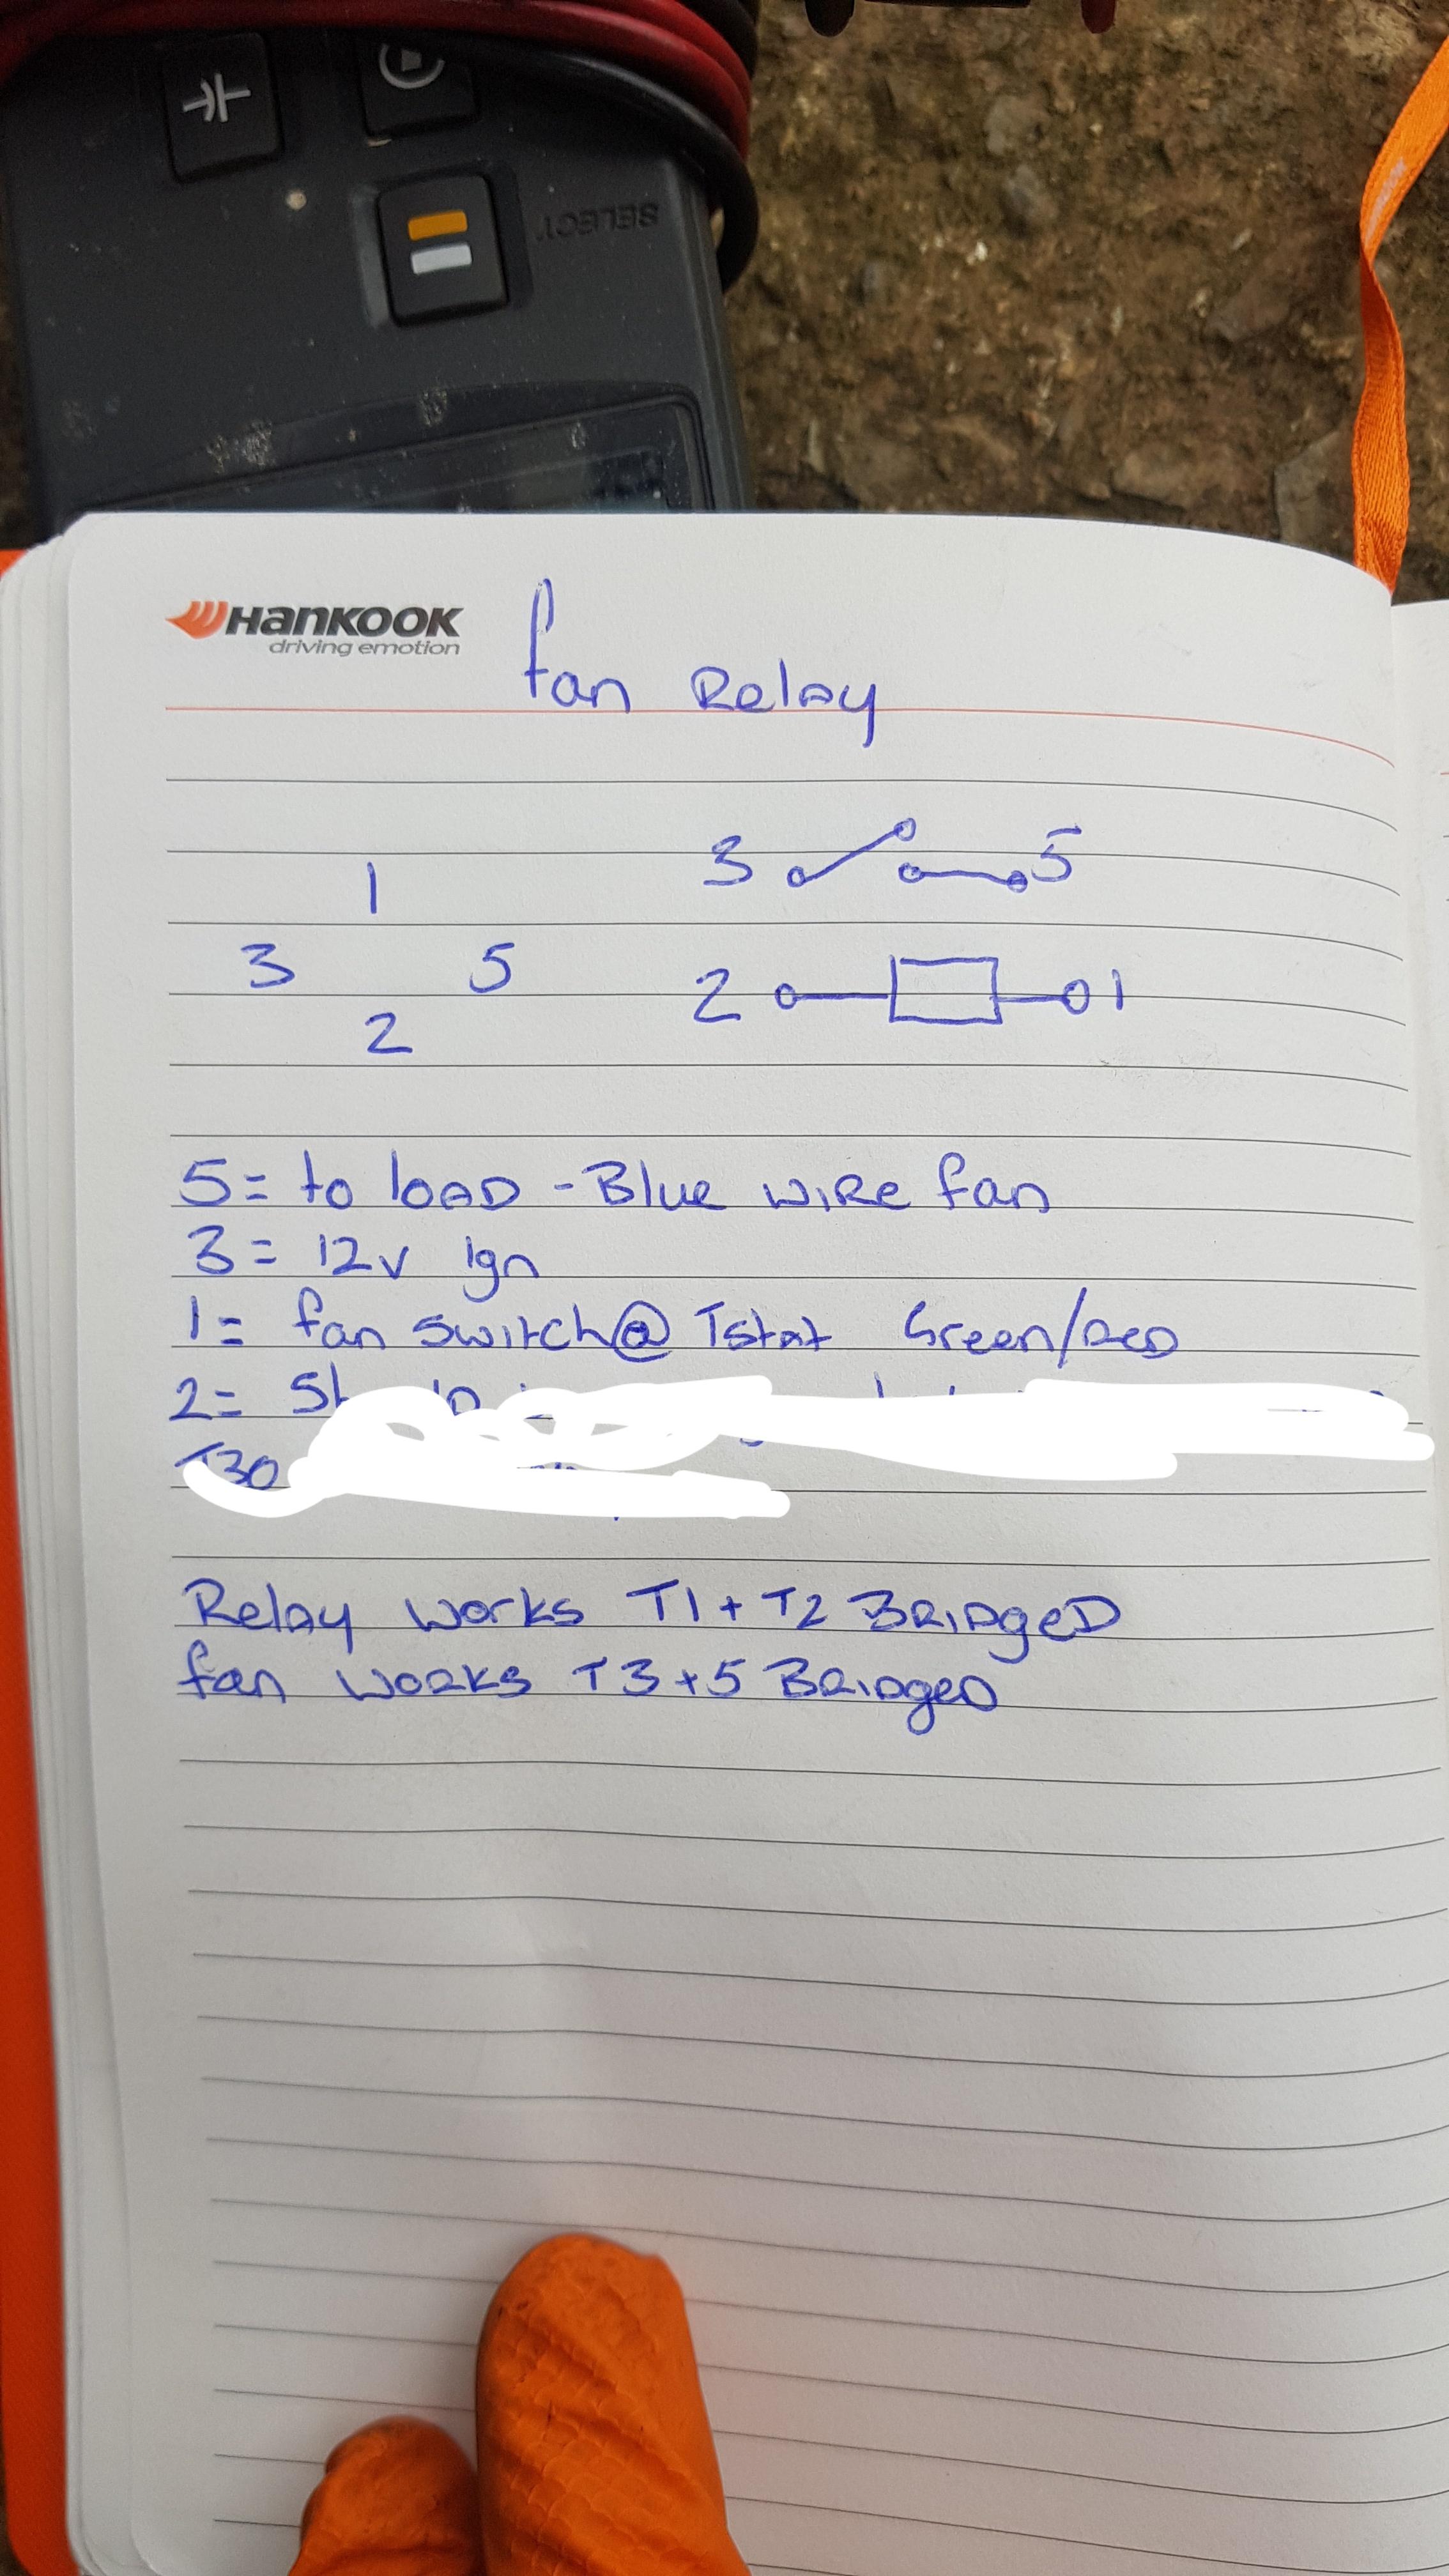 SELECT
HANKOOK
driving emotion
fan Relay
1
3 5
2
3 5
2 1
5= to load - Blue wire fan
3= 12v ign
1= fan switch@ Tstat Green/Red
2=
T30
Relay works T1 + T2 Bridged
fan works T3 + 5 Bridged